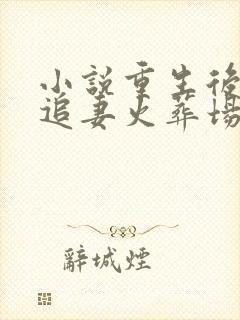 小說重生後
追妻火葬場
辭城煙